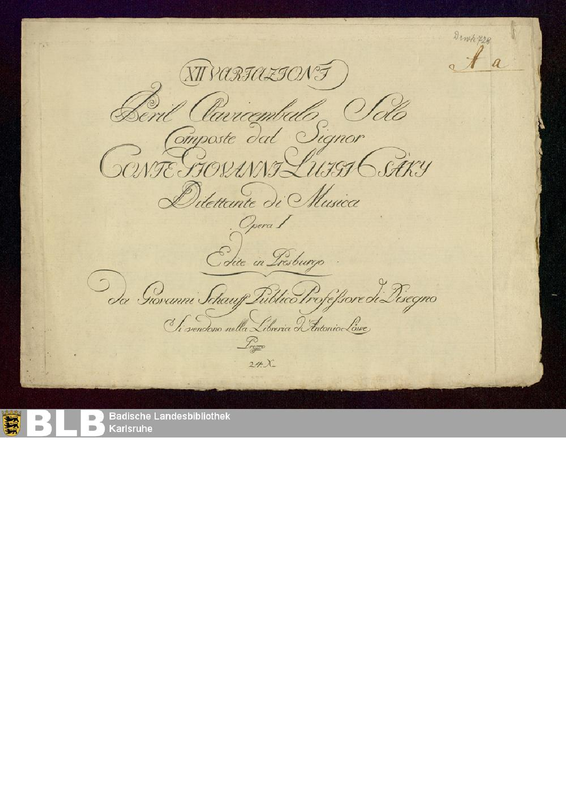 A a
XII VARIAZIONI
Per il Clavicembalo Solo
Composte dal Signor
CONTE GIOVANNI LUIGI CSÁKY
Dilettante di Musica
Opera I
Edite in Presburgo
Da Giovanni Schauff Publico Professore di Disegno
Si vendono nella Libreria d'Antonio Löwe
Prezzo
24 X
BLB Badische Landesbibliothek
Karlsruhe